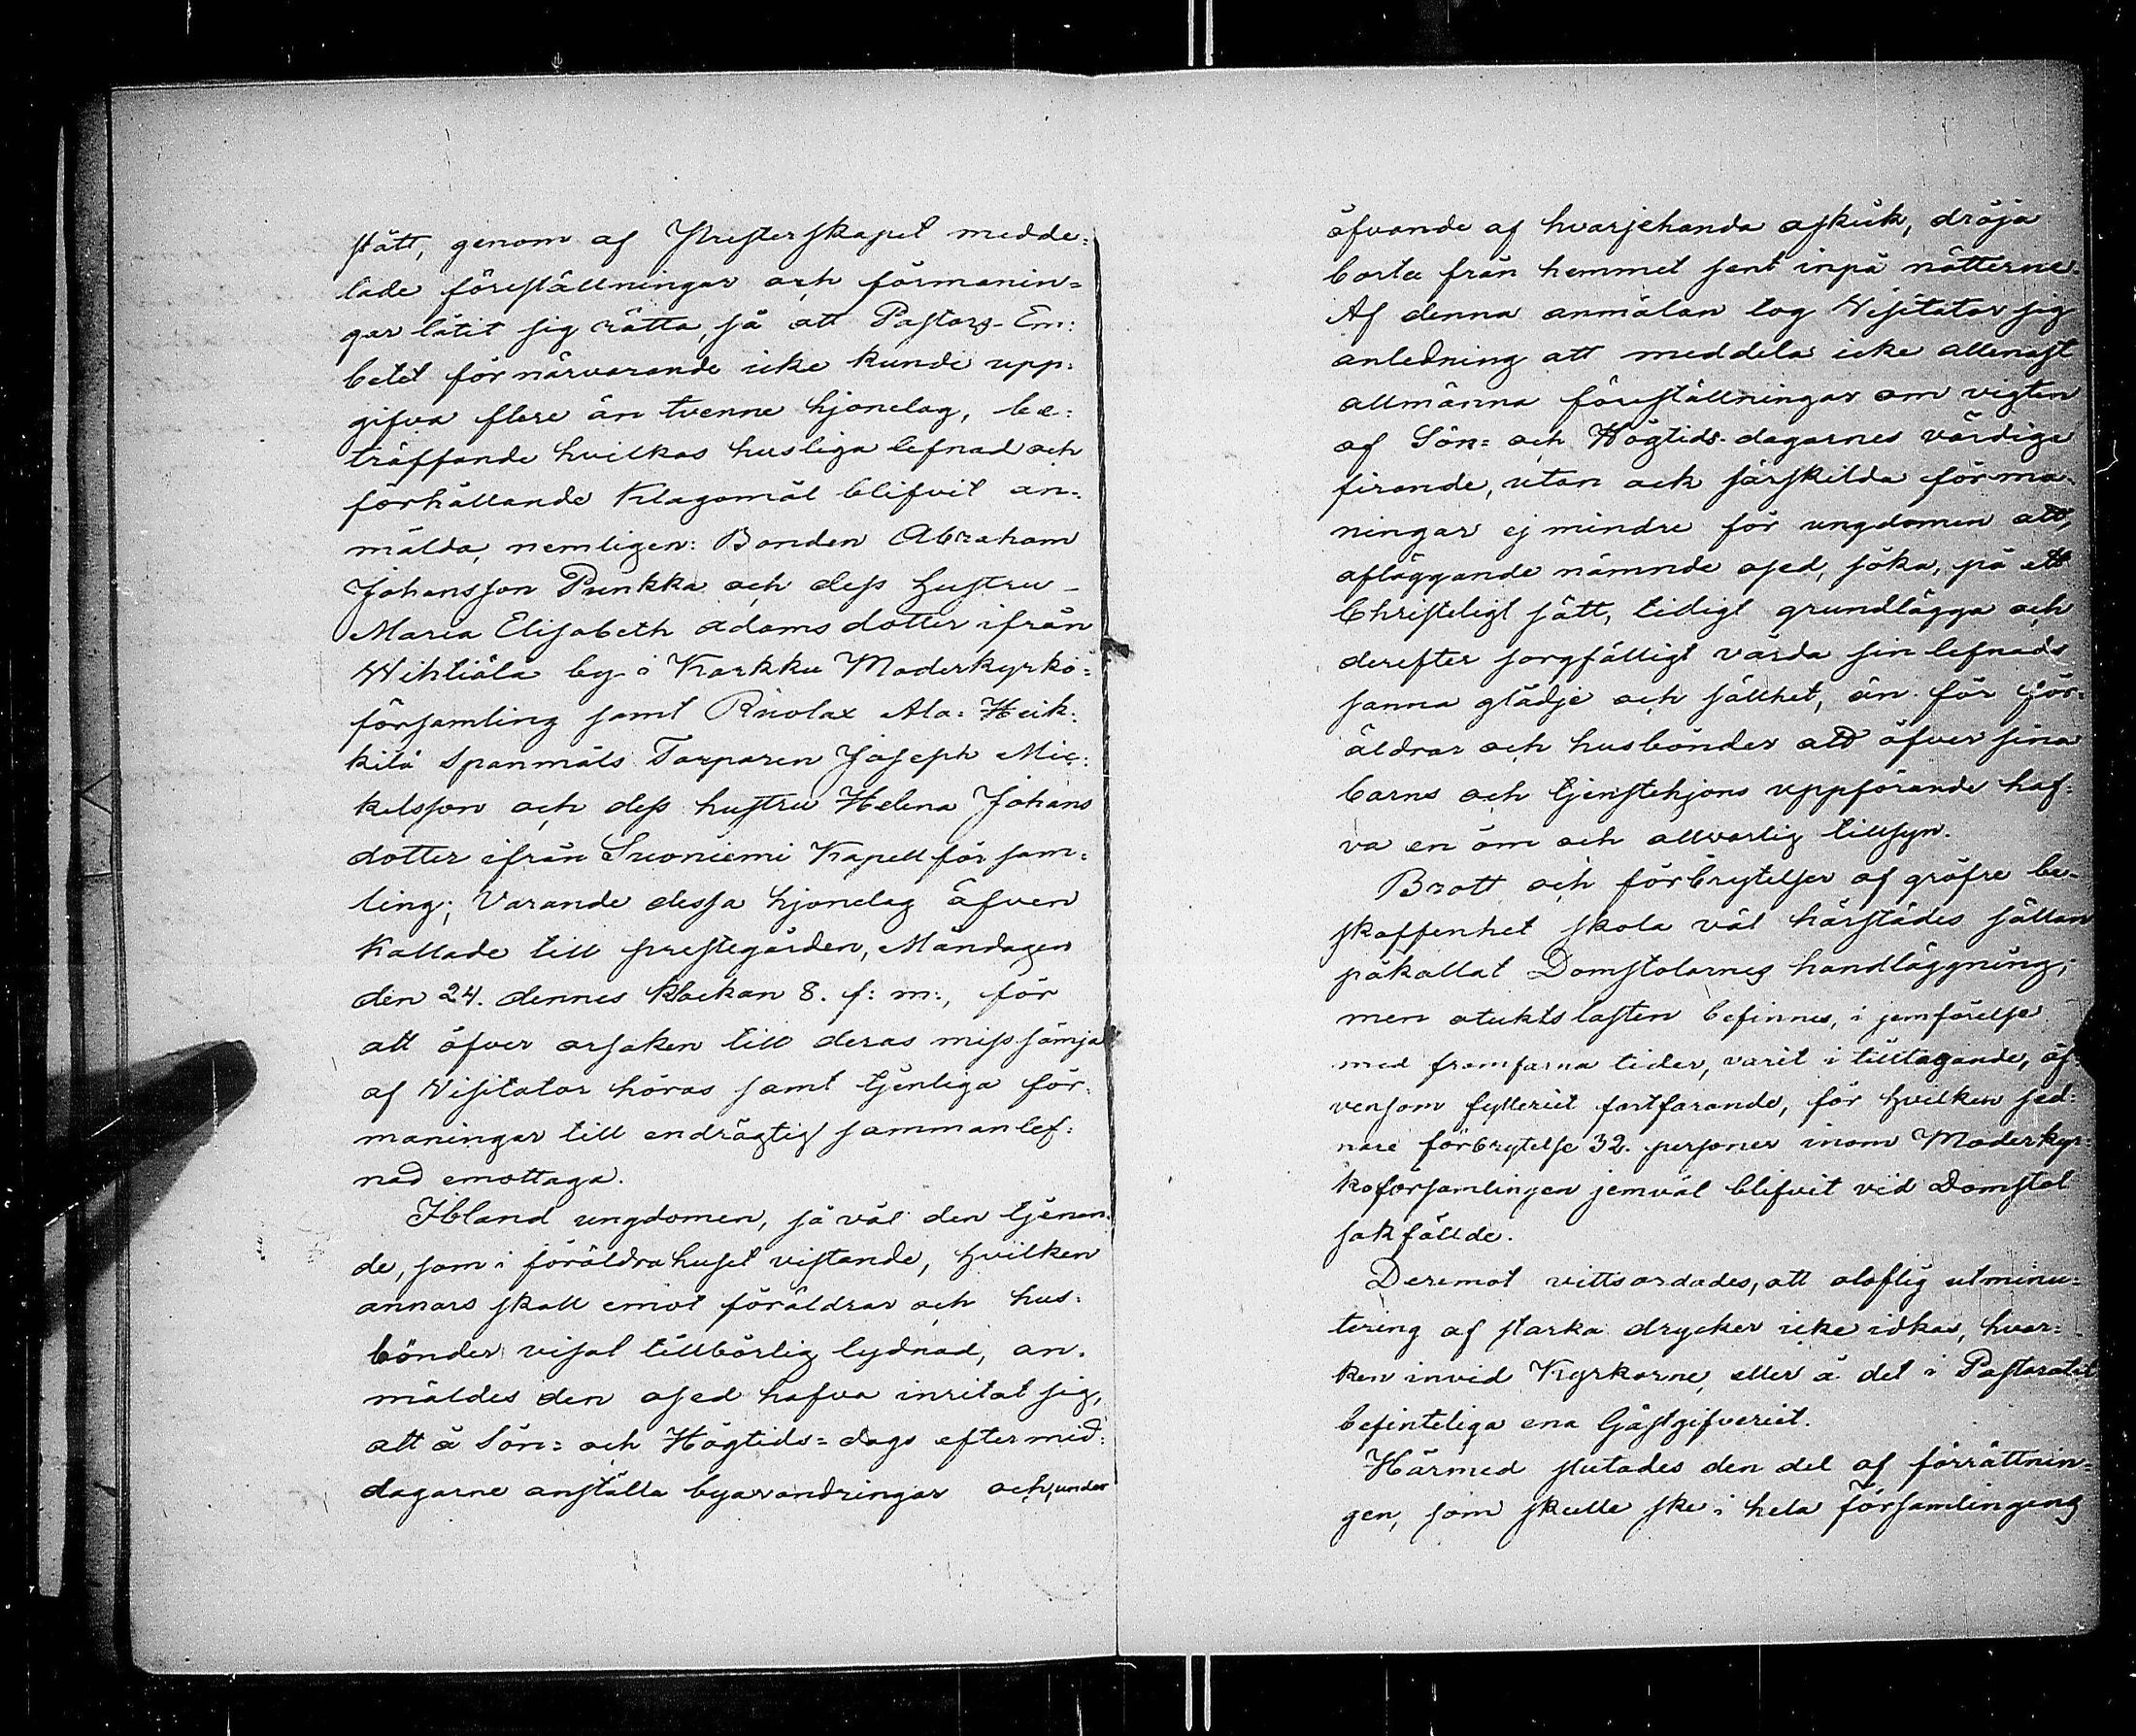 stått, genom af Presterskapet medde=
lade föreställningar och förmanin=
gar låtit sig rätta, så att Pastors-Em=
betet för närvarande icke kunde upp=
gifva flere än tvenne hjonelag, be=
träffande hvilkas husliga lefnad och
förhållande Klagomål blifvit an=
mälda, nemligen: Bonden Abraham
Johansson Punkka och dess Hustru
Maria Elisabeth Adams dotter ifrån
Wihtiälä by i Karkku Moderkyrko=
församling samt Riiolax Ala-Heik=
kilä Spanmåls Torparen Joseph Mic=
kelsson och dess hustru Helena Johans
dotter ifrån Suoniemi Kapellförsam=
ling; Varande dessa hjonelag äfven
Kallade till prestegården, Måndagen
den 24. dennes klockan 8. f: m:, för
att öfver orsaken till deras misssämja
af Visitator höras samt tjenliga för=
maningar till endrägtig sammanlef=
nad emottaga.
Ibland ungdomen, så väl den tjenan=
de, som i föräldrahuset vistande, hvilken
annars skall emot föräldrar och hus=
bönder visat tillbörlig lydnad, an=
mäldes den osed hafva inritat sig,
att å Sön= och Högtids=dags eftermid=
dagarne anställa byavandringar och, under
öfvande af hvarjehanda ofskick, dröja
borta från hemmet sent inpå nätterne.
Af denna anmälan tog Visitator sig
anledning att meddela icke allenast
allmänna föreställningar om vigten
af Sön= och Högtids-dagarnes värdiga
firande, utan ock särskilda förma=
ningar ej mindre för ungdomen att,
afläggande nämnde osed, söka, på ett
Christeligt sätt, tidigt grundlägga och
derefter sorgfälligt vårda sin lefnads
sanna glädje och sällhet, än för för=
äldrar och husbönder att öfver sina
barns och tjenstehjons uppförande haf=
va en öm och allvarlig tillsyn.
Brott och förbrytelser af gröfre be=
skaffenhet skola väl härstädes sällan
påkallat Domstolarnes handläggning;
men otuktslasten befinnes, i jemförelse
med framfarna tider, varit i tilltagande, äf=
vensom fylleriet fortfarande, för hvilken sed=
nare förbrytelse 32. personer inom Moderkyr=
koförsamlingen jemväl blifvit vid Domstol
sakfällde.
Deremot vittsordades, att oloflig utminu=
tering af starka drycker icke idkas, hvar=
ken invid Kyrkorne, eller å det i Pastoratet
befinteliga ena Gästgifveriet.
Härmed slutades den del af förrättnin=
gen, som skulle ske i hela Församlingens